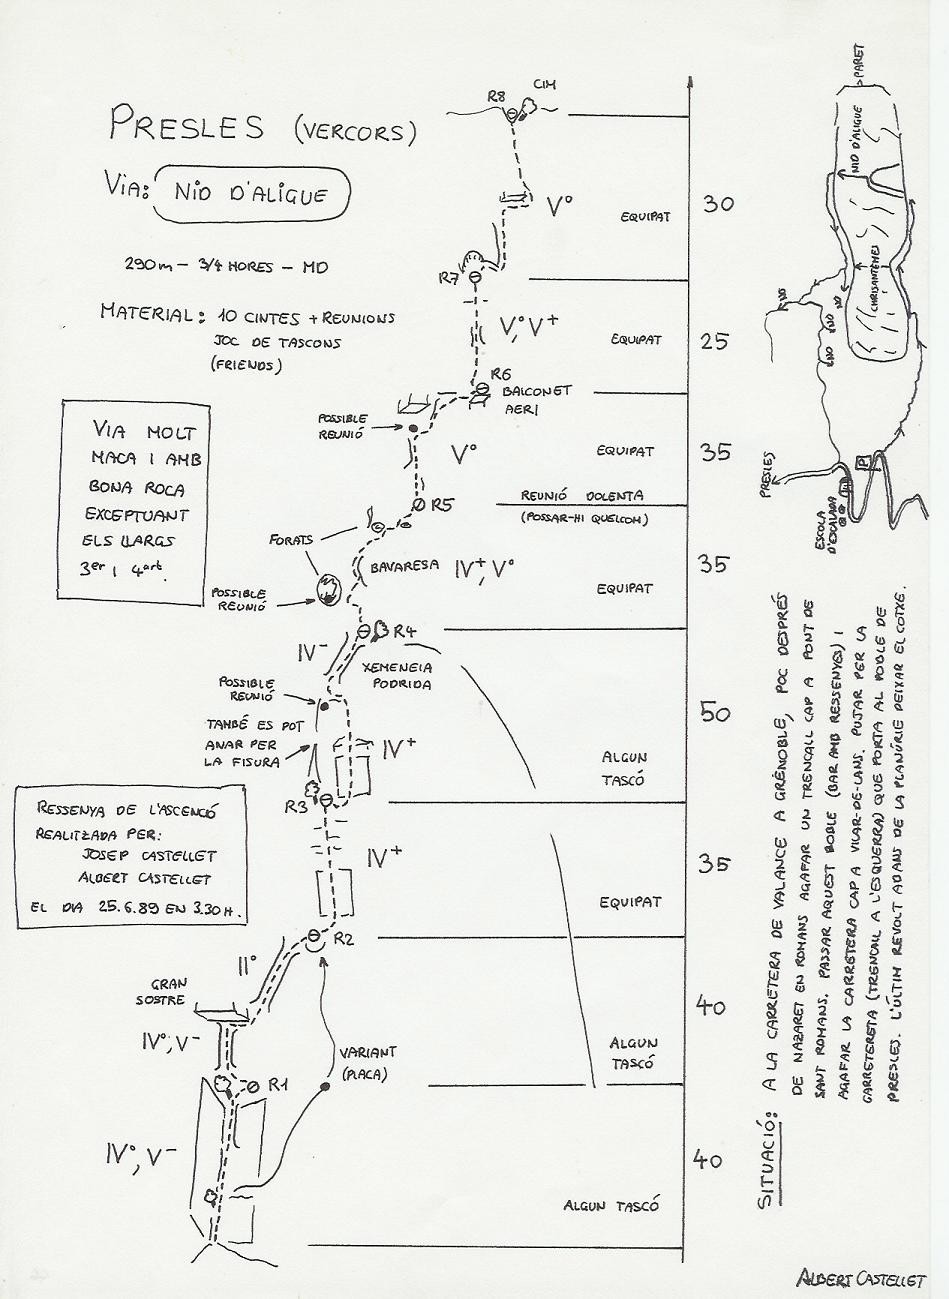 PRESLES (VERCORS)
VIA: NID D'ALIGUE
290m - 3/4 HORES - MD
MATERIAL: 10 CINTES + REUNIONS
JOC DE TASCONS
(FRIENDS)
VIA MOLT
MACA I AMB
BONA ROCA
EXCEPTUANT
ELS LLARGS
3er I 4art.
RESSENYA DE L'ASCENCIÓ
REALITZADA PER:
JOSEP CASTELLET
ALBERT CASTELLET
EL DIA 25.6.89 EN 3.30H.
CIM
R8
V°
EQUIPAT
30
R7
V°, V+
EQUIPAT
25
R6
BALCONET
AERI
POSSIBLE
REUNIÓ
V°
EQUIPAT
35
R5
REUNIÓ DOLENTA
(POSSAR-HI QUELCOM)
FORATS
BAVARESA
IV+, V°
EQUIPAT
35
POSSIBLE
REUNIÓ
R4
IV-
XEMENEIA
PODRIDA
POSSIBLE
REUNIÓ
TAMBÉ ES POT
ANAR PER
LA FISURA
IV+
50
ALGUN
TASCÓ
R3
IV+
35
EQUIPAT
R2
II°
GRAN
SOSTRE
IV°, V-
40
ALGUN
TASCÓ
VARIANT
(PLACA)
R1
IV°, V-
40
ALGUN TASCÓ
PARET
NID D'ALIGUE
CHRISANTEMES
NO
NO
NO
NO
NO
P
PRESLES
ESCOLA
D'ESCALADA
SITUACIÓ: A LA CARRETERA DE VALANCE A GRÉNOBLE, POC DESPRÉS
DE NAZARET EN ROMANS AGAFAR UN TRENCALL CAP A PONT DE
SANT ROMANS. PASSAR AQUEST POBLE (BAR AMB RESSENYES) I
AGAFAR LA CARRETERA CAP A VILAR-DE-LANS. PUJAR PER LA
CARRETERETA (TRENCALL A L'ESQUERRA) QUE PORTA AL POBLE DE
PRESLES. L'ÚLTIM REVOLT ABANS DE LA PLANÚRIE DEIXAR EL COTXE.
ALBERT CASTELLET